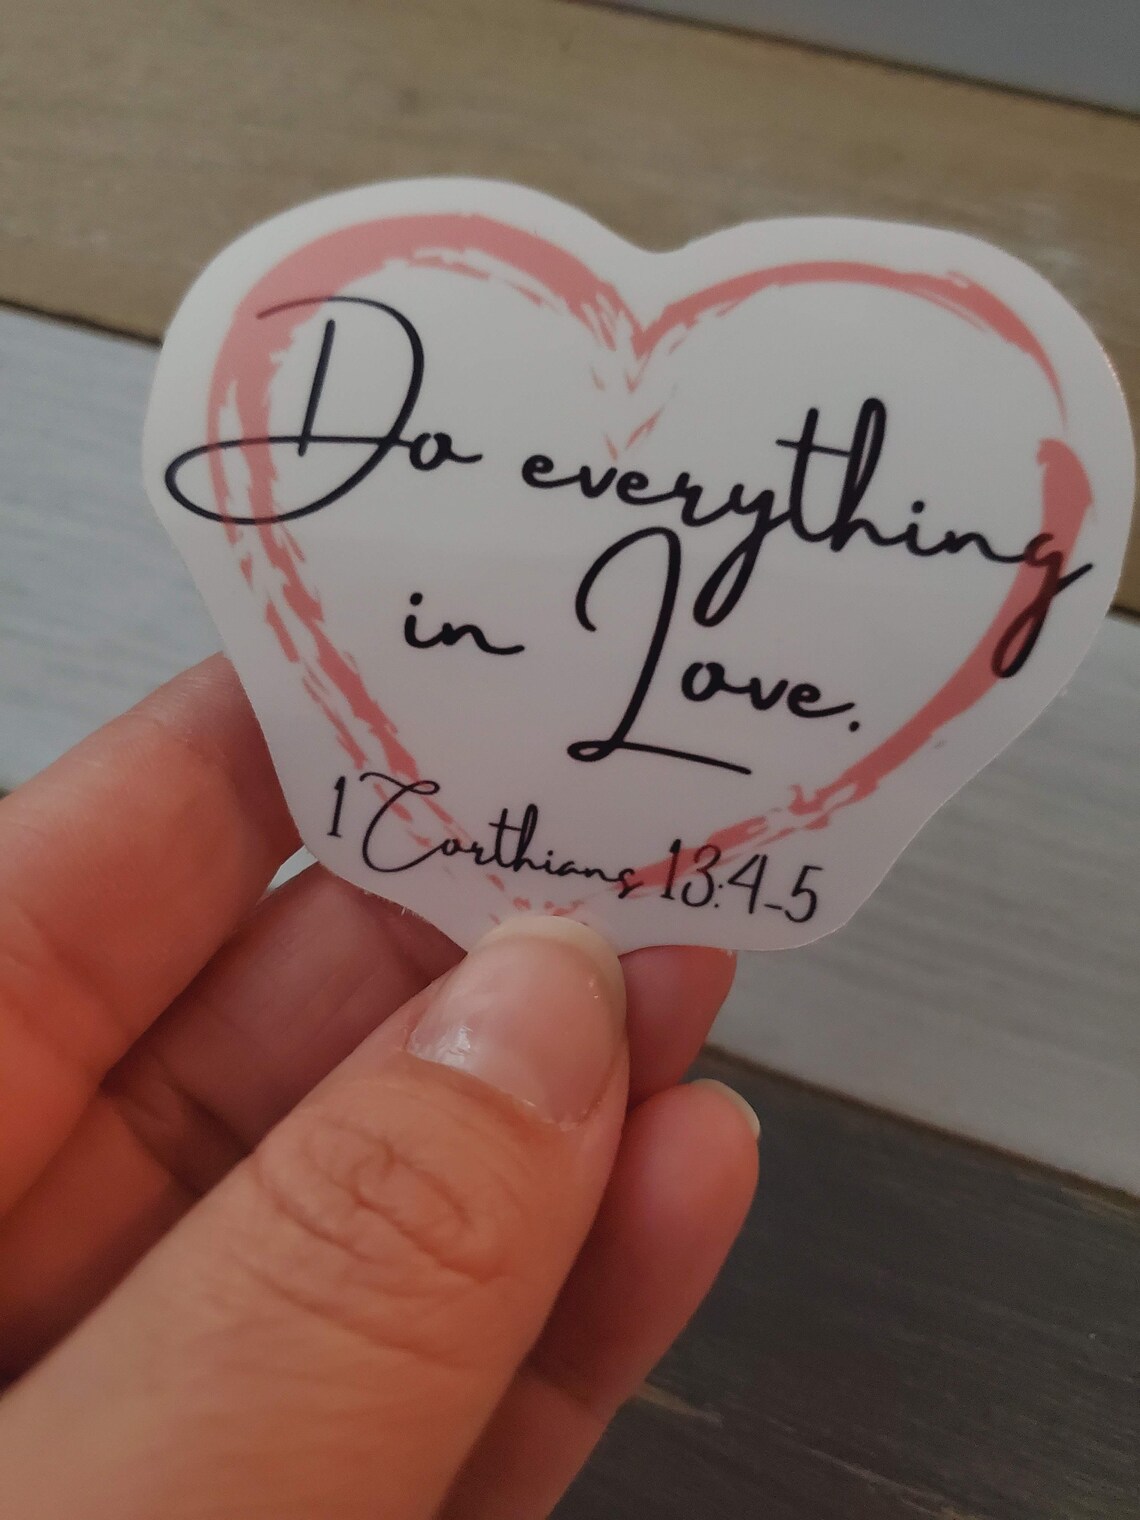 Do everything
in Love.
1 Corthians 13:4-5